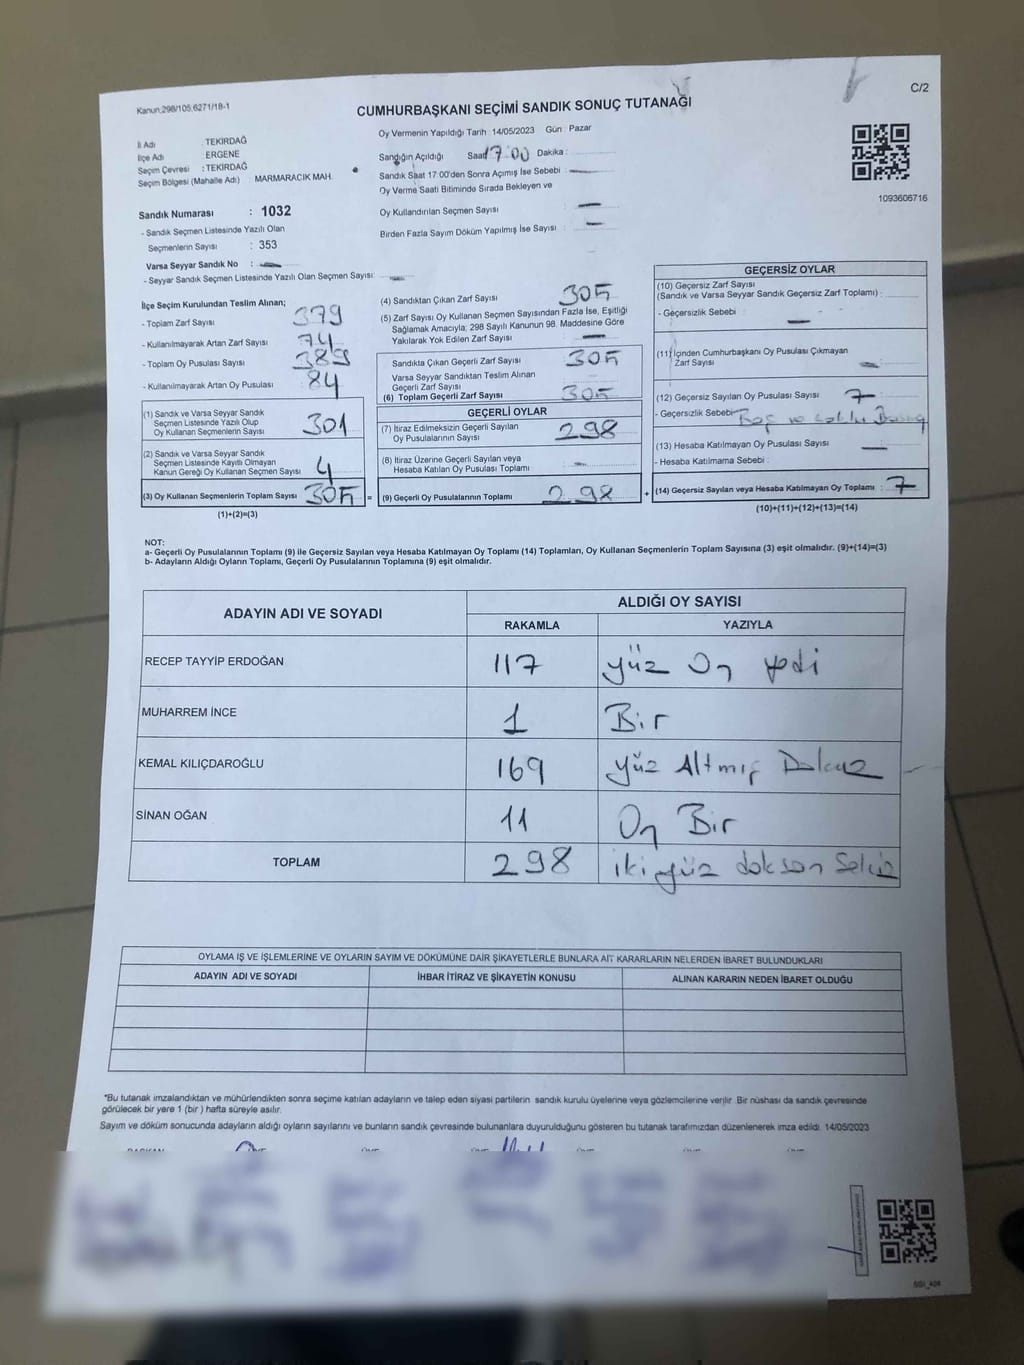 Kanun:298/105,6271/18-1
C/2
CUMHURBAŞKANI SEÇİMİ SANDIK SONUÇ TUTANAĞI
İl Adı : TEKİRDAĞ
İlçe Adı : ERGENE
Seçim Çevresi : TEKİRDAĞ
Seçim Bölgesi (Mahalle Adı) : MARMARACIK MAH.
Sandık Numarası : 1032
- Sandık Seçmen Listesinde Yazılı Olan
Seçmenlerin Sayısı : 353
Varsa Seyyar Sandık No : —
- Seyyar Sandık Seçmen Listesinde Yazılı Olan Seçmen Sayısı: —
Oy Vermenin Yapıldığı Tarih : 14/05/2023 Gün : Pazar
Sandığın Açıldığı Saat 17:00 Dakika :
Sandık Saat 17.00'den Sonra Açımış İse Sebebi : —
Oy Verme Saati Bitiminde Sırada Bekleyen ve
Oy Kullandırılan Seçmen Sayısı : —
Birden Fazla Sayım Döküm Yapılmış İse Sayısı : —
1093606716
İlçe Seçim Kurulundan Teslim Alınan;
- Toplam Zarf Sayısı : 379
- Kullanılmayarak Artan Zarf Sayısı : 74
- Toplam Oy Pusulası Sayısı : 389
- Kullanılmayarak Artan Oy Pusulası : 84
(1) Sandık ve Varsa Seyyar Sandık
Seçmen Listesinde Yazılı Olup
Oy Kullanan Seçmenlerin Sayısı : 301
(2) Sandık ve Varsa Seyyar Sandık
Seçmen Listesinde Kayıtlı Olmayan
Kanun Gereği Oy Kullanan Seçmen Sayısı : 4
(3) Oy Kullanan Seçmenlerin Toplam Sayısı : 305 =
(1)+(2)=(3)
(4) Sandıktan Çıkan Zarf Sayısı : 305
(5) Zarf Sayısı Oy Kullanan Seçmen Sayısından Fazla İse, Eşitliği
Sağlamak Amacıyla; 298 Sayılı Kanunun 98. Maddesine Göre
Yakılarak Yok Edilen Zarf Sayısı : —
Sandıkta Çıkan Geçerli Zarf Sayısı : 305
Varsa Seyyar Sandıktan Teslim Alınan
Geçerli Zarf Sayısı :
(6) Toplam Geçerli Zarf Sayısı : 305
GEÇERLİ OYLAR
(7) İtiraz Edilmeksizin Geçerli Sayılan
Oy Pusulalarının Sayısı : 298
(8) İtiraz Üzerine Geçerli Sayılan veya
Hesaba Katılan Oy Pusulası Toplamı : —
(9) Geçerli Oy Pusulalarının Toplamı : 298 +
GEÇERSİZ OYLAR
(10) Geçersiz Zarf Sayısı
(Sandık ve Varsa Seyyar Sandık Geçersiz Zarf Toplamı) :
- Geçersizlik Sebebi : —
(11) İçinden Cumhurbaşkanı Oy Pusulası Çıkmayan
Zarf Sayısı : —
(12) Geçersiz Sayılan Oy Pusulası Sayısı : 7
- Geçersizlik Sebebi : Boş ve
(13) Hesaba Katılmayan Oy Pusulası Sayısı : —
- Hesaba Katılmama Sebebi :
(14) Geçersiz Sayılan veya Hesaba Katılmayan Oy Toplamı : 7
(10)+(11)+(12)+(13)=(14)
NOT:
a- Geçerli Oy Pusulalarının Toplamı (9) ile Geçersiz Sayılan veya Hesaba Katılmayan Oy Toplamı (14) Toplamları, Oy Kullanan Seçmenlerin Toplam Sayısına (3) eşit olmalıdır. (9)+(14)=(3)
b- Adayların Aldığı Oyların Toplamı, Geçerli Oy Pusulalarının Toplamına (9) eşit olmalıdır.
ADAYIN ADI VE SOYADI ALDIĞI OY SAYISI
RAKAMLA YAZIYLA
RECEP TAYYİP ERDOĞAN 117 yüz On yedi
MUHARREM İNCE 1 Bir
KEMAL KILIÇDAROĞLU 169 yüz Altmış Dokuz
SİNAN OĞAN 11 On Bir
TOPLAM 298 ikiyüz doksan Sekiz
OYLAMA İŞ VE İŞLEMLERİNE VE OYLARIN SAYIM VE DÖKÜMÜNE DAİR ŞİKAYETLERLE BUNLARA AİT KARARLARIN NELERDEN İBARET BULUNDUKLARI
ADAYIN ADI VE SOYADI İHBAR İTİRAZ VE ŞİKAYETİN KONUSU ALINAN KARARIN NEDEN İBARET OLDUĞU
*Bu tutanak imzalandıktan ve mühürlendikten sonra seçime katılan adayların ve talep eden siyasi partilerin sandık kurulu üyelerine veya gözlemcilerine verilir. Bir nüshası da sandık çevresinde
görülecek bir yere 1 (bir ) hafta süreyle asılır.
Sayım ve döküm sonucunda adayların aldığı oyların sayılarını ve bunların sandık çevresinde bulunanlara duyurulduğunu gösteren bu tutanak tarafımızdan düzenlenerek imza edildi. 14/05/2023